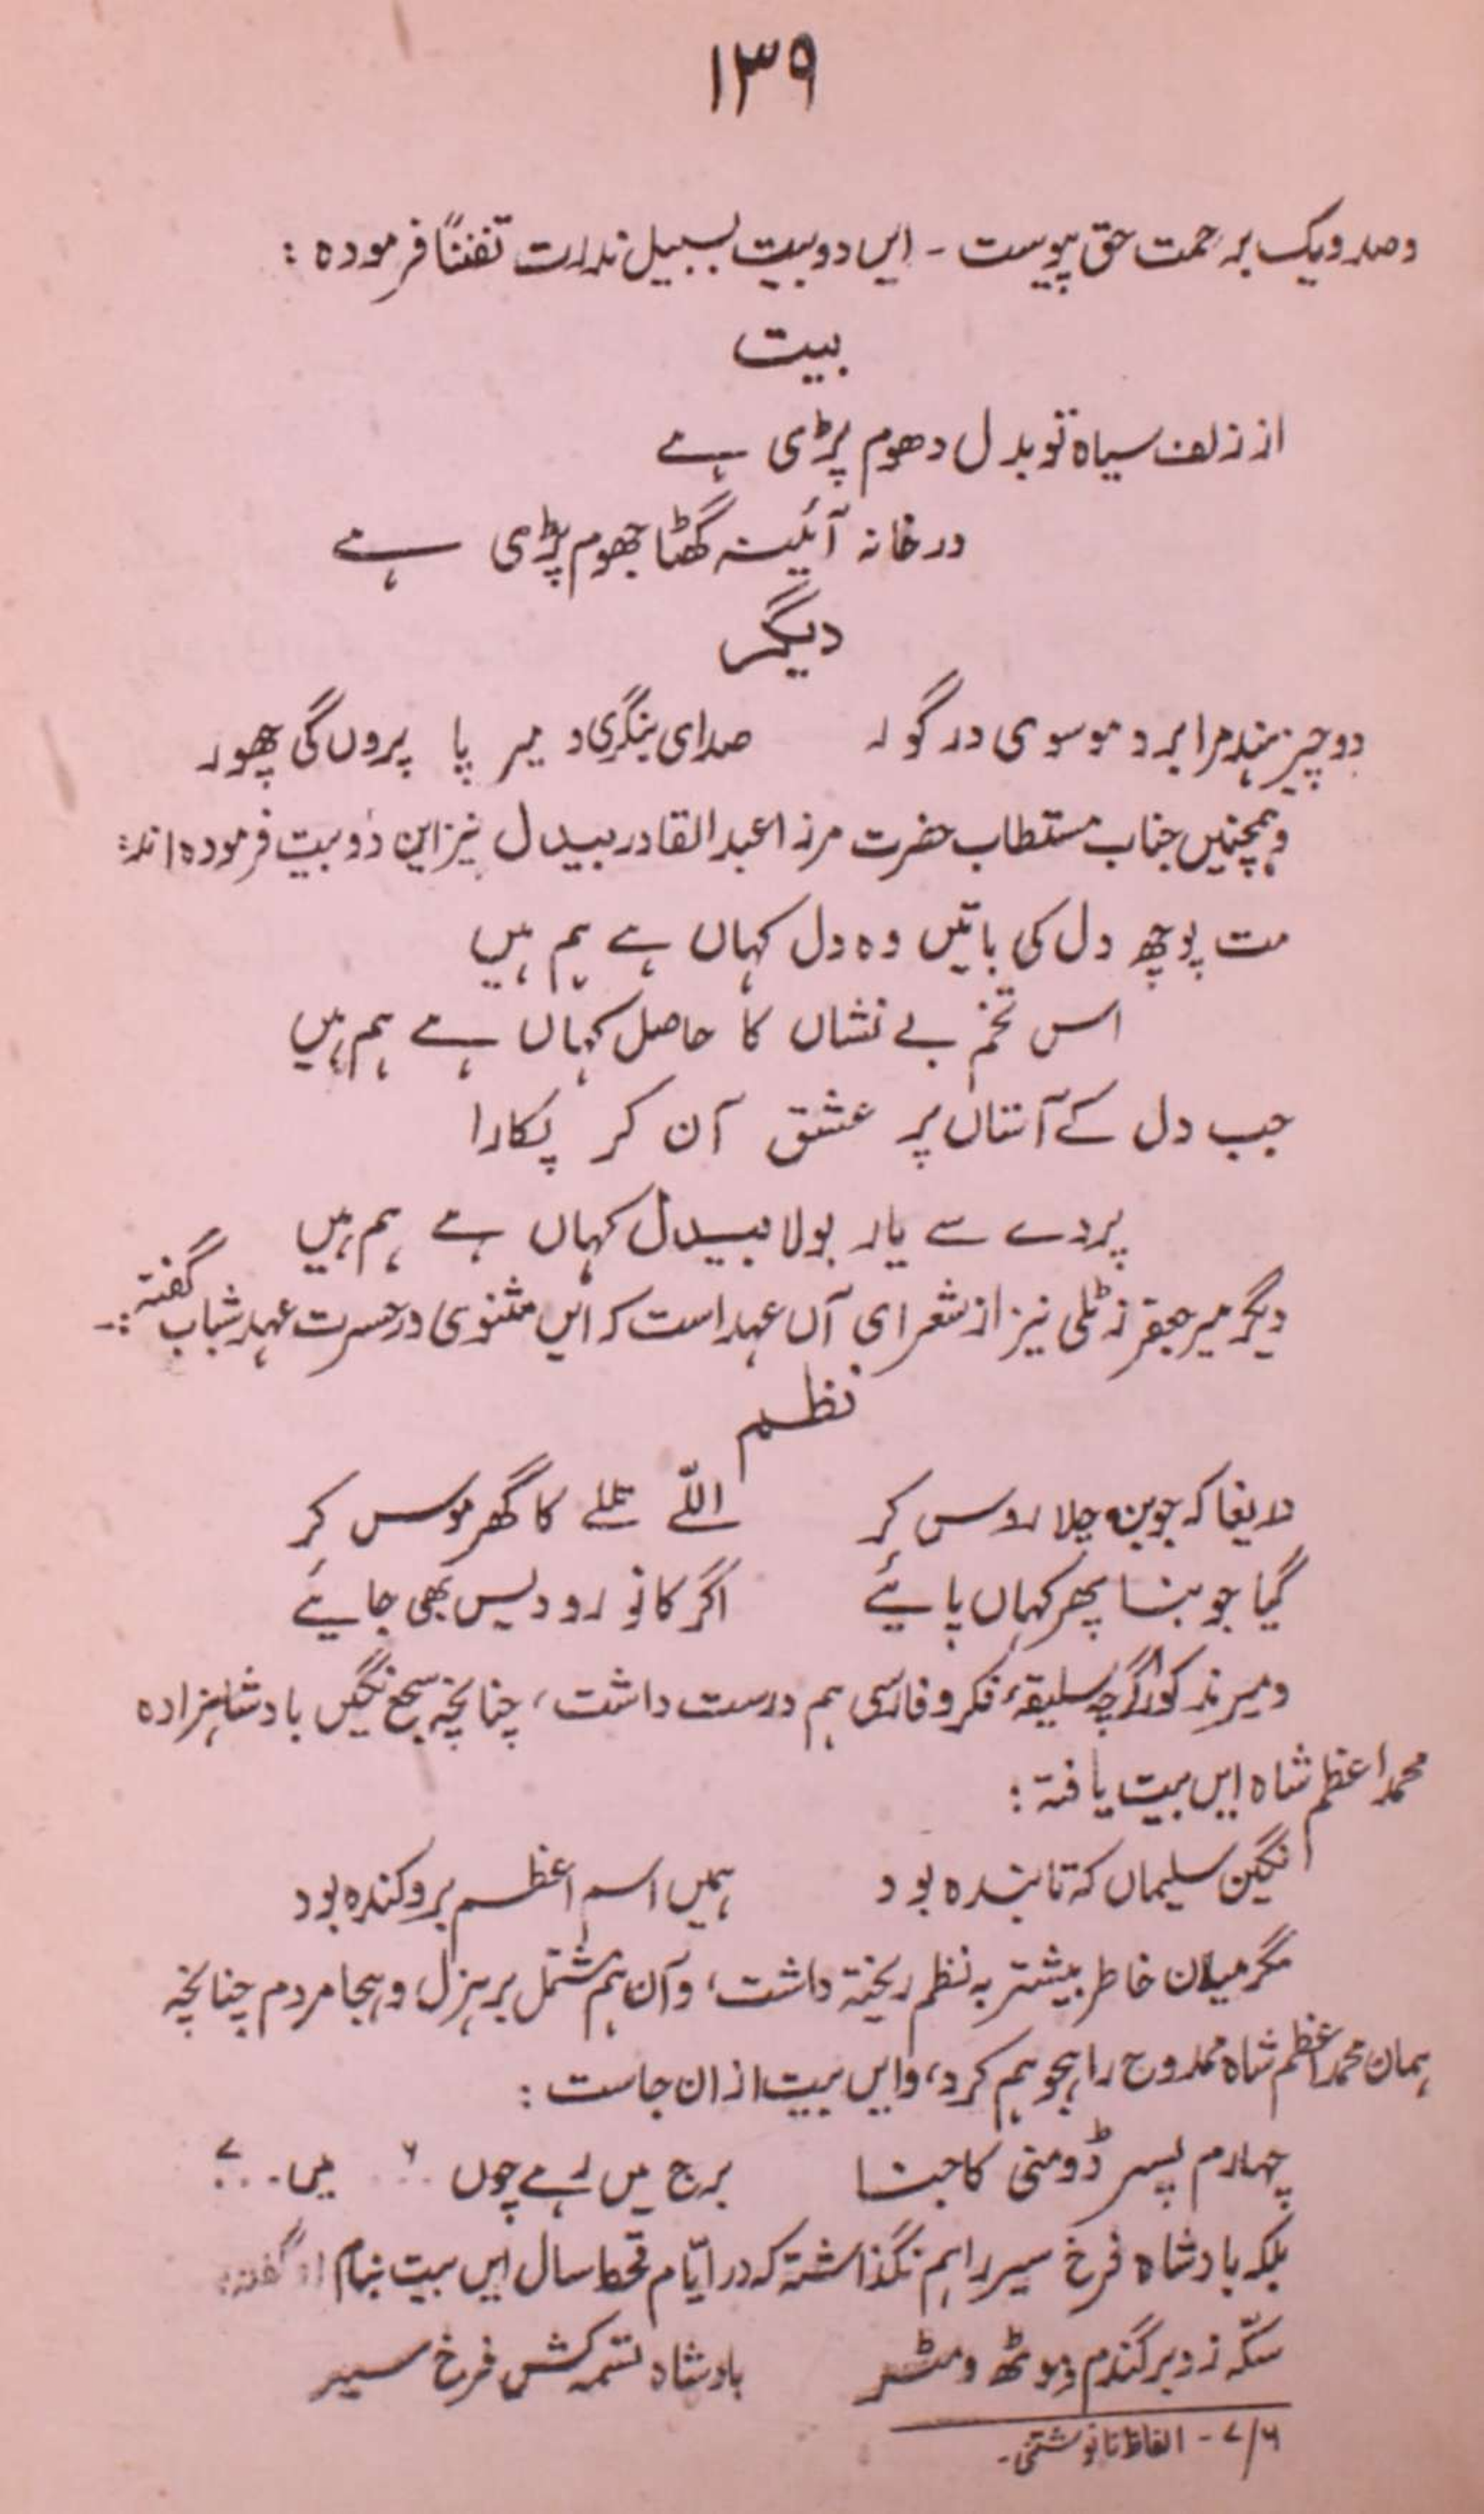 ۱۳۹
و صد و یک بر رحمت حق پیوست - ایں دو بیت بسبیل ندرت تفنناً فرموده :
بیت
از زلف سیاه تو بدل دھوم پڑی ہے
در خانہ آئینہ گھٹا جھوم پڑی ہے
دیگر
دو چیز ہند مرا برد موسوی در گور صدای بنگری و میر پا پروں گی چھور
وہمچنیں جناب مستطاب حضرت مرزا عبدالقادر بیدل نیز این دو بیت فرموده اند :
مت پوچھ دل کی باتیں وہ دل کہاں ہے ہم ہیں
اس تخم بے نشاں کا حاصل کہاں ہے ہم ہیں
جب دل کے آستاں پر عشق آن کر پکارا
پردے سے یار بولا بیدل کہاں ہے ہم ہیں
دیگر میر جعفر زٹلی نیز از شعرای آں عہد است کہ ایں مثنوی در حسرت عہد شباب گفتہ :-
نظم
دریغا کہ جوبن چلا روس کر اللّے تللے کا گھر موس کر
گیا جوبنا پھر کہاں پائیے اگر کانورو دیس بھی جائیے
و میر مذکور اگرچہ سلیقۂ فکر و فارسی ہم درست داشت، چنانچہ سجع نگیں بادشاہزاده
محمد اعظم شاه ایں بیت یافتہ :
نگین سلیماں کہ تابنده بود ہمیں اسم اعظم برو کنده بود
مگر میلان خاطر بیشتر بہ نظم ریختہ داشت، وآن ہم مشتمل بر ہزل و ہجا مردم چنانچہ
ہمان محمد اعظم شاه ممدوح را ہجو ہم کرد، و ایں بیت ازان جاست :
چہارم پسر ڈومنی کا جنا برج میں رہے چوں ... ۶ میں ... ۷
بلکہ بادشاه فرخ سیر را ہم نگذاشتہ کہ در ایّام قحط سال ایں بیت بنام او گفتہ
سکّہ زد بر گندم و موٹھ و مٹر بادشاه تسمہ کش فرخ سیر
۷/۶ - الفاظ نانوشتنی -